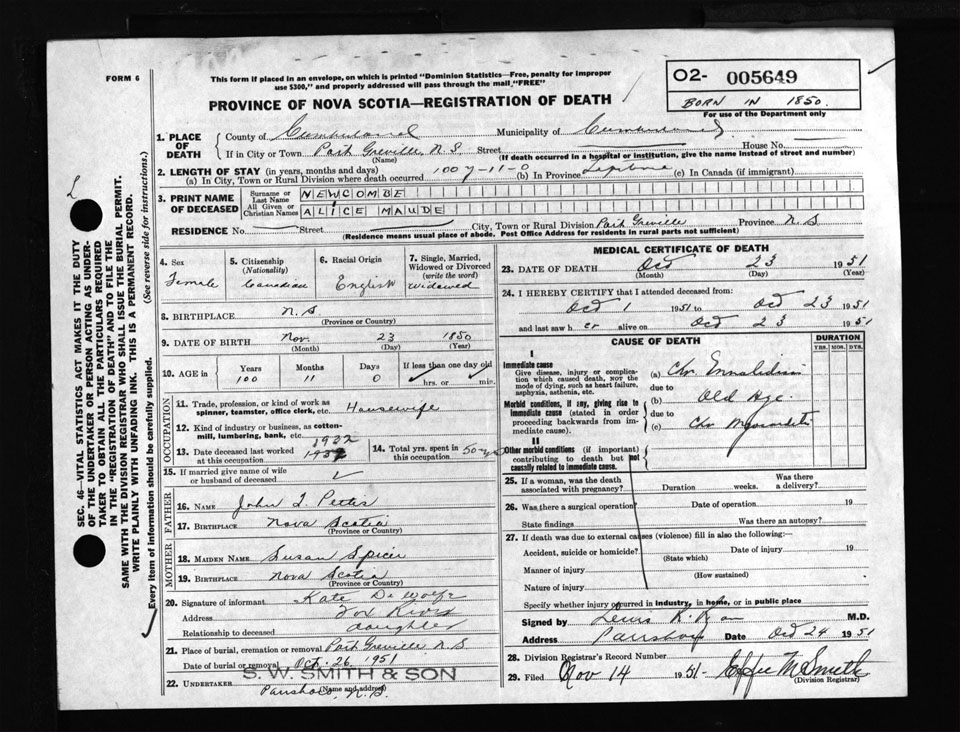 FORM 6
This form if placed in an envelope, on which is printed "Dominion Statistics—Free, penalty for improper
use $300," and properly addressed will pass through the mail "FREE"
PROVINCE OF NOVA SCOTIA—REGISTRATION OF DEATH
O2- 005649
BORN IN 1850.
For use of the Department only
1. PLACE OF DEATH
County of Cumberland Municipality of Cumberland
If in City or Town Port Greville N.S. Street House No.
(Name) (If death occurred in a hospital or institution, give the name instead of street and number)
2. LENGTH OF STAY (in years, months and days)
(a) In City, Town or Rural Division where death occurred 100 y-11-0 (b) In Province Lifetime (c) In Canada (if immigrant)
3. PRINT NAME OF DECEASED
Surname or Last Name NEWCOMBE
All Given or Christian Names ALICE MAUDE
RESIDENCE No. Street City, Town or Rural Division Port Greville Province N.S
(Residence means usual place of abode. Post Office Address for residents in rural parts not sufficient)
4. Sex Female
5. Citizenship (Nationality) Canadian
6. Racial Origin English
7. Single, Married, Widowed or Divorced (write the word) Widowed
8. BIRTHPLACE N.S
(Province or Country)
9. DATE OF BIRTH Nov. 23 1850
(Month) (Day) (Year)
10. AGE in Years 100 Months 11 Days 0 If less than one day old hrs. or min.
OCCUPATION
11. Trade, profession, or kind of work as spinner, teamster, office clerk, etc. Housewife
12. Kind of industry or business, as cotton-mill, lumbering, bank, etc.
13. Date deceased last worked at this occupation 1932
14. Total yrs. spent in this occupation 50-yrs
15. If married give name of wife or husband of deceased
FATHER
16. Name John
17. BIRTHPLACE Nova Scotia
(Province or Country)
MOTHER
18. MAIDEN NAME Susan
19. BIRTHPLACE Nova Scotia
(Province or Country)
20. Signature of informant Kate De Wolfe
Address Fox River
Relationship to deceased daughter
21. Place of burial, cremation or removal Port Greville N.S.
Date of burial or removal Oct. 26, 1951
S. W. SMITH & SON
22. UNDERTAKER Parrsboro, N.S.
(Name and address)
MEDICAL CERTIFICATE OF DEATH
23. DATE OF DEATH Oct 23 1951
(Month) (Day) (Year)
24. I HEREBY CERTIFY that I attended deceased from:
Oct 1 1951 to Oct 23 1951
and last saw her alive on Oct 23 1951
CAUSE OF DEATH
DURATION
YRS. MOS. DYS.
I
Immediate cause
Give disease, injury or complication which caused death, NOT the mode of dying, such as heart failure, asphyxia, asthenia, etc.
(a) Chr
due to
Morbid conditions, if any, giving rise to immediate cause (stated in order proceeding backwards from immediate cause).
(b) Old Age.
due to
(c) Chr Myocarditis
II
Other morbid conditions (if important) contributing to death but not causally related to immediate cause.
25. If a woman, was the death associated with pregnancy? Duration weeks. Was there a delivery?
26. Was there a surgical operation? Date of operation 19
State findings Was there an autopsy?
27. If death was due to external causes (violence) fill in also the following:
Accident, suicide or homicide? Date of injury 19
(State which)
Manner of injury
(How sustained)
Nature of injury
Specify whether injury occurred in industry, in home, or in public place
Signed by M.D.
Address Parrsboro Date Oct 24 1951
28. Division Registrar's Record Number
29. Filed Nov 14 1951 Effie M Smith
(Division Registrar)
SEC. 46—VITAL STATISTICS ACT MAKES IT THE DUTY
OF THE UNDERTAKER OR PERSON ACTING AS UNDER-
TAKER TO OBTAIN ALL THE PARTICULARS REQUIRED
IN THE "REGISTRATION OF DEATH" AND TO FILE THE
SAME WITH THE DIVISION REGISTRAR WHO SHALL ISSUE THE BURIAL PERMIT.
WRITE PLAINLY WITH UNFADING INK. THIS IS A PERMANENT RECORD.
Every item of information should be carefully supplied. (See reverse side for instructions.)